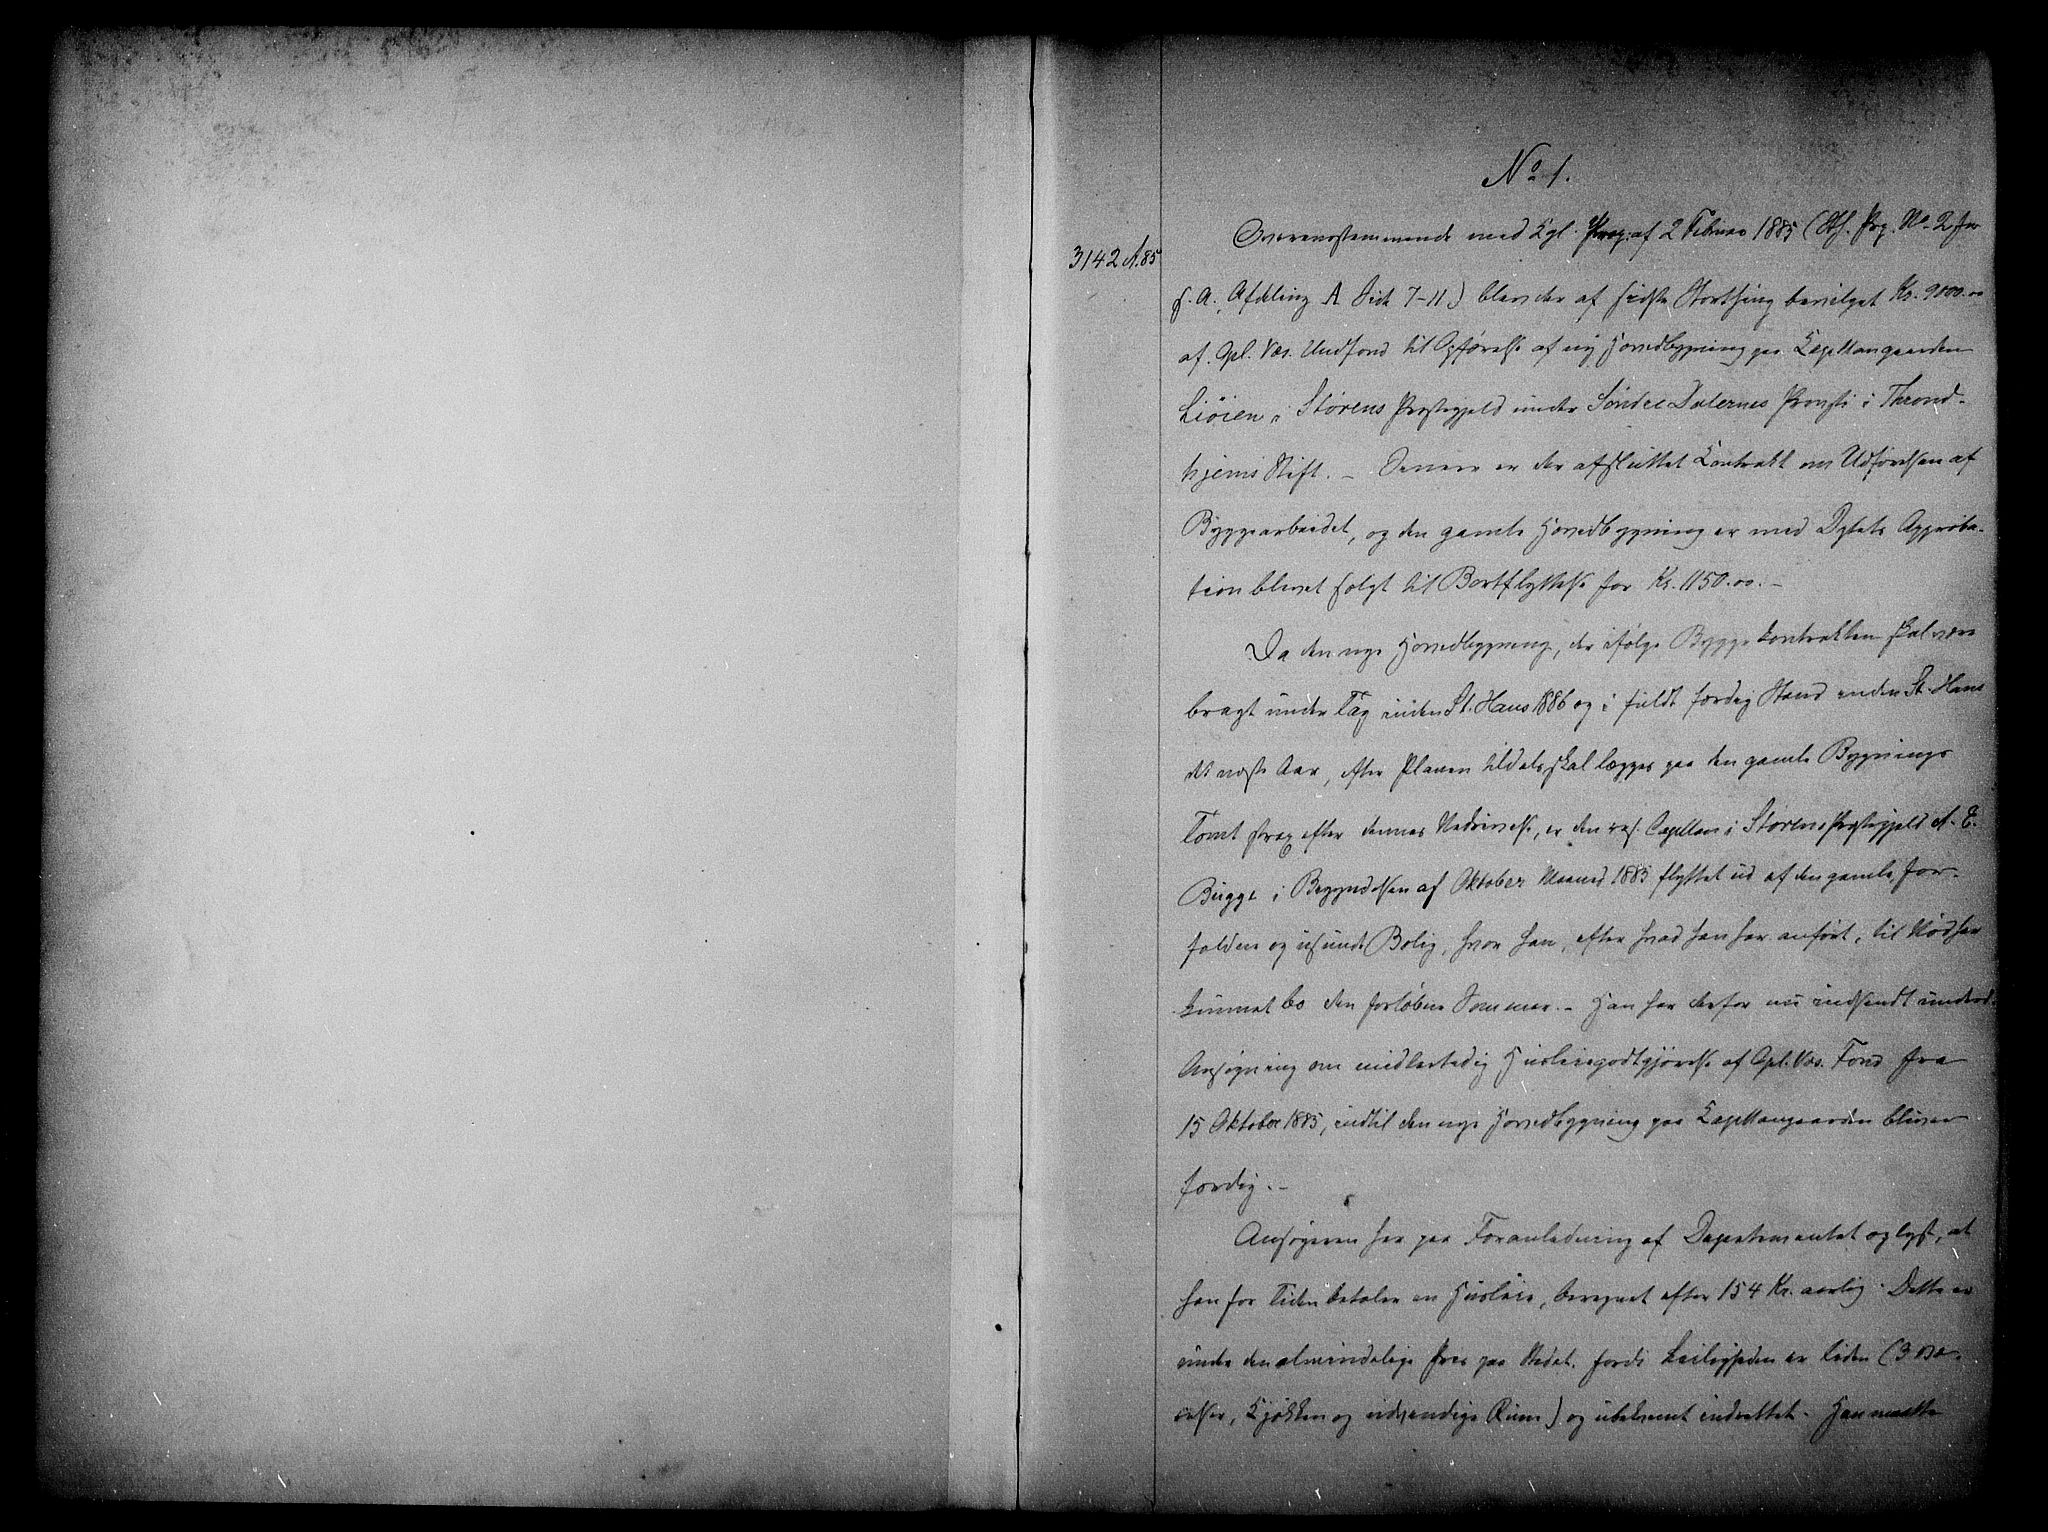 No 1.
3142 A. 85
Overensstemmende med Kgl. Prop. af 2 Februar 1885 (Sth. Prp. No. 2 for
s. A., Afdeling A Side 7-11) blev der af sidste Storthing bevilget Kr. 9000.00
af Opl. Væs. Undfond til Opførelse af ny Hovedbygning paa Capellangaarden
Liøien i Størens Præstegjeld under Søndre Dalernes Provsti i Thrond-
hjems Stift. – Senere er der afsluttet Kontrakt om Udførelsen af
Byggearbeidet, og den gamle Hovedbygning er med Dptets Approba-
tion blevet solgt til Bortflyttelse for Kr. 1150.00. –
Da den nye Hovedbygning, der ifølge Byggekontrakten skal være
bragt under Tag inden St. Hans 1886 og i fuldt færdig Stand inden St. Hans
det næste Aar, efter Planen tildels skal lægges paa den gamle Bygnings
Tomt strax efter dennes Nedrivelse, er den res. Capellan i Størens Præstegjeld A. E.
Bugge i Begyndelsen af Oktober Maaned 1885 flyttet ud af den gamle for-
faldne og usunde Bolig, hvor han, efter hvad han har anført, til Nød har
kunnet bo den forløbne Sommer. – Han har derfor nu indsendt underd.
Ansøgning om midlertidig Husleiegodtgjørelse af Opl. Væs. Fond fra
15 Oktober 1885, indtil den nye Hovedbygning paa Capellangaarden bliver
færdig. –
Ansøgeren har paa Foranledning af Departementet oplyst, at
han for Tiden betaler en Husleie, beregnet efter 154 Kr. aarlig. Dette er
under den almindelige Pris paa Stedet, fordi Leiligheden er liden (3 Væ-
relser, Kjøkken og nødvendige Rum) og ubekvemt indrettet. Han maatte